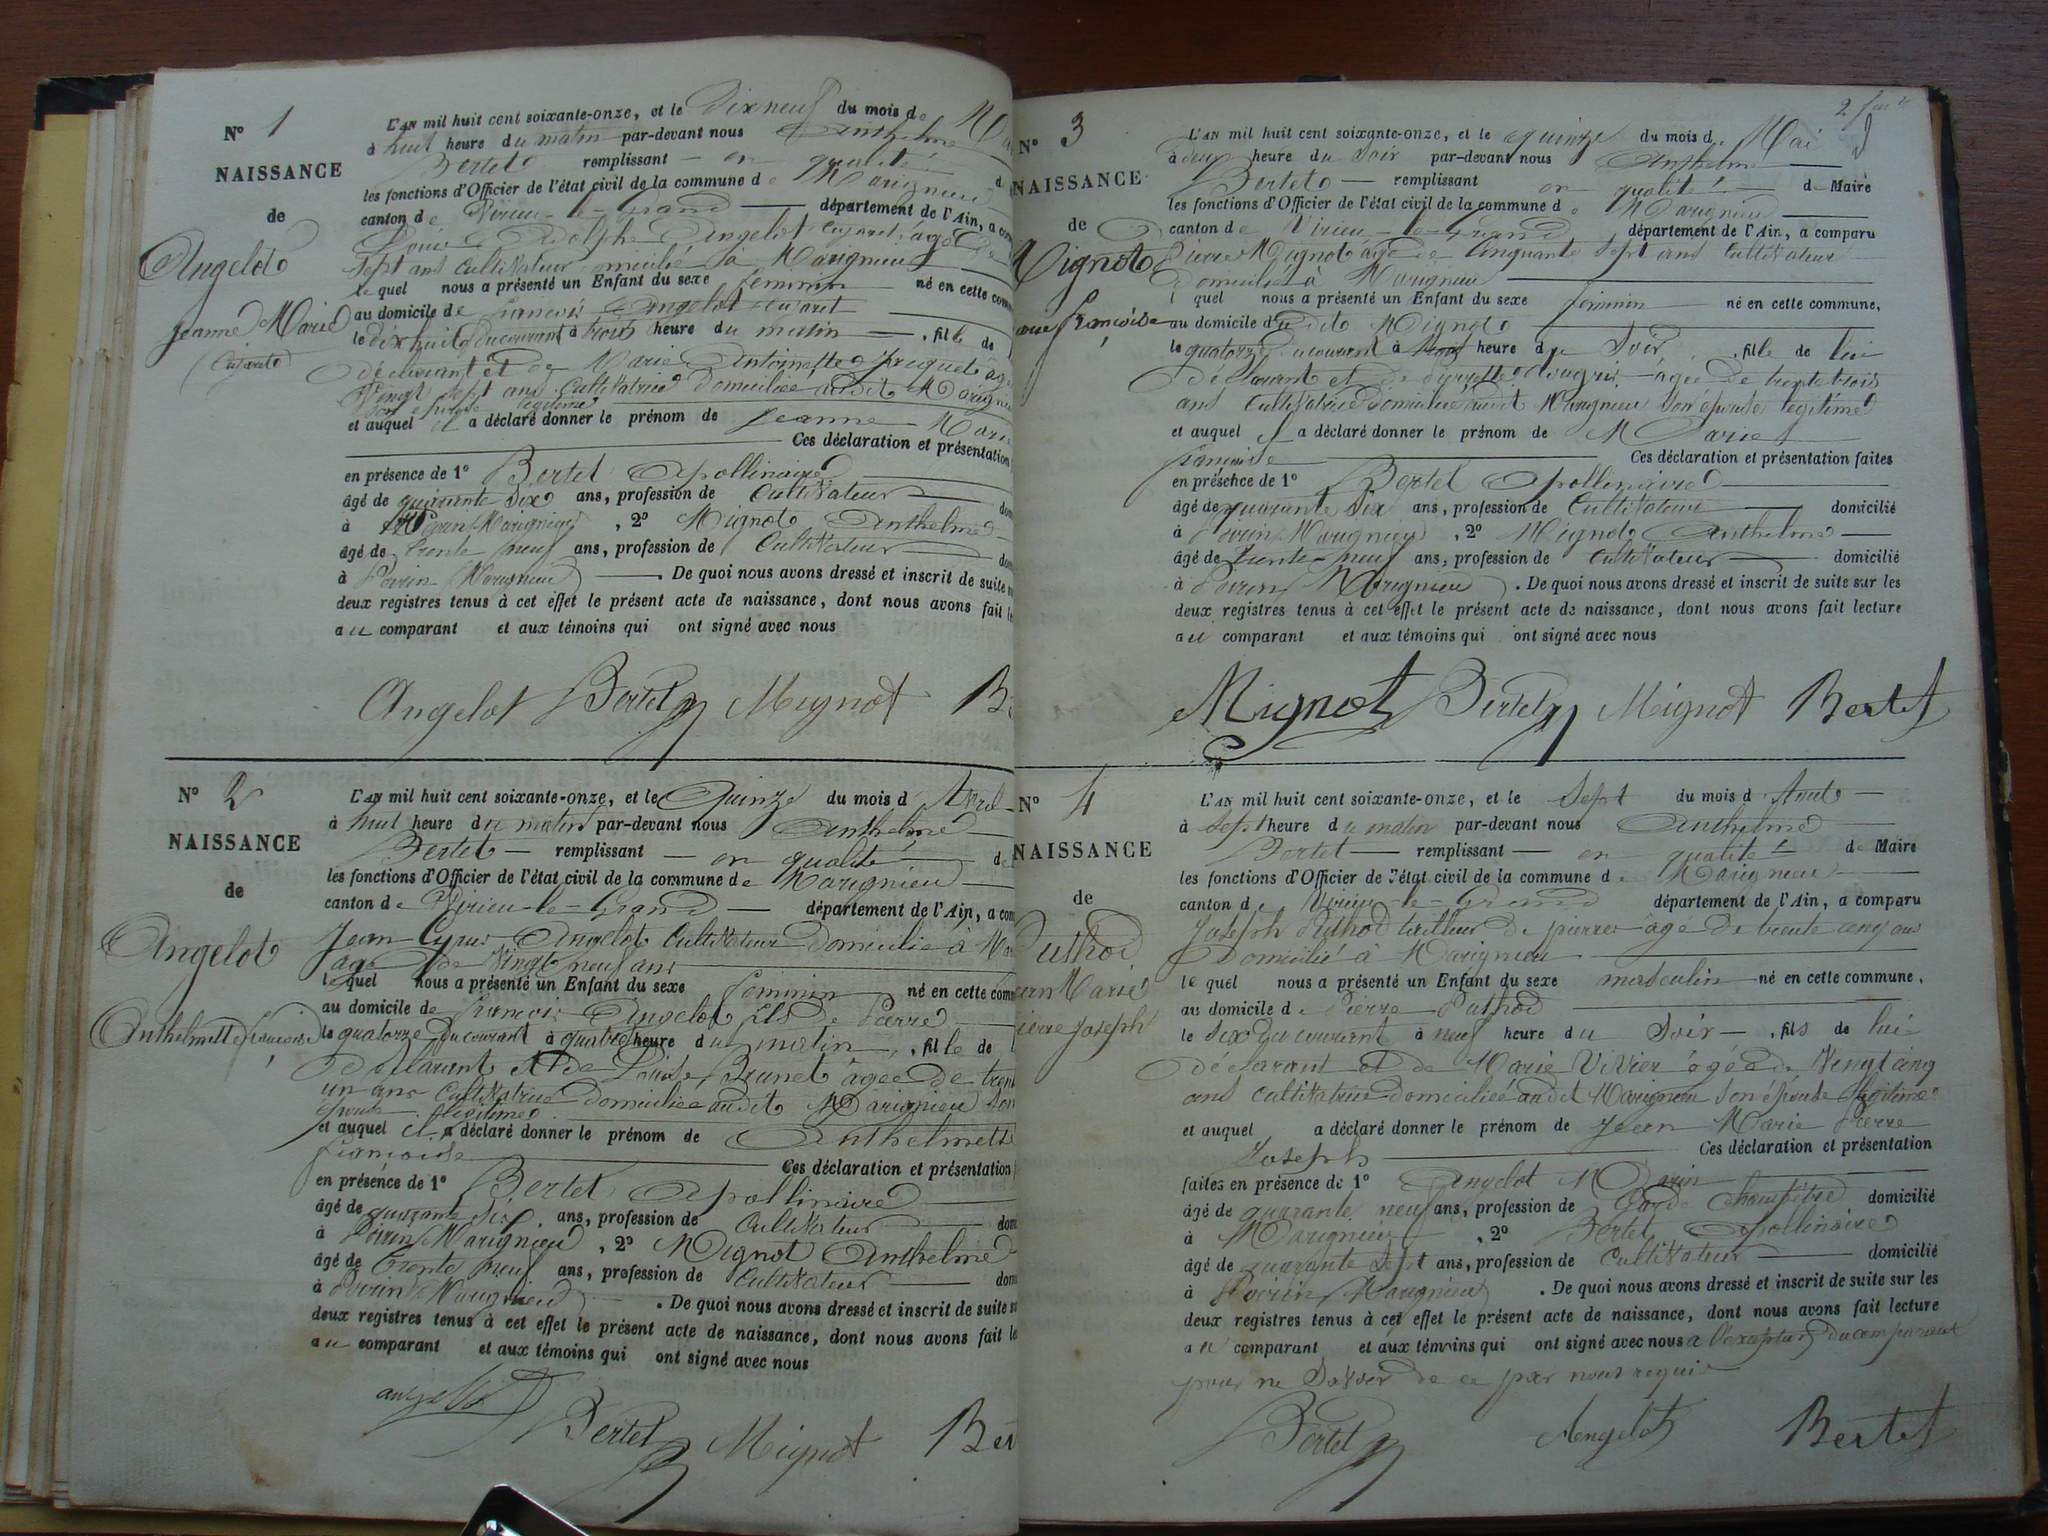 N° 1
NAISSANCE
de
Angelot
Jeanne Marie
(Cujaret)
L'AN mil huit cent soixante-onze, et le dix neuf du mois de
à huit heure du matin par-devant nous Anthelme
Bertet remplissant en qualité
les fonctions d'Officier de l'état civil de la commune de Marignieu
canton de Virieu-le-Grand département de l'Ain, a
Louis Adolphe Angelot Cujaret, agé de
sept ans Cultivateur domicilié à Marignieu
le quel nous a présenté un Enfant du sexe feminin né en cette
au domicile de francois Angelot Cujaret
le dix huit du courant à trois heure du matin , fille de
déclarant et de Marie Antoinette
Vingt sept ans Cultivatrice domiciliée audit Marignieu
son épouse légitime
et auquel il a déclaré donner le prénom de Jeanne Marie
Ces déclaration et présentation
en présence de 1° Bertet Apollinaire
âgé de quarante six ans, profession de Cultivateur
à Poirin Marignieu , 2° Mignot Anthelme
âgé de trente neuf ans, profession de Cultivateur
à Poirin Marignieu . De quoi nous avons dressé et inscrit de suite
deux registres tenus à cet effet le présent acte de naissance, dont nous avons fait
au comparant et aux témoins qui ont signé avec nous
Angelot Bertet Mignot
N° 2
NAISSANCE
de
Angelot
Anthelmette francoise
L'AN mil huit cent soixante-onze, et le Quinze du mois d'Avril
à huit heure du matin par-devant nous Anthelme
Bertet remplissant en qualité
les fonctions d'Officier de l'état civil de la commune de Marignieu
canton de Virieu-le-Grand département de l'Ain, a
Jean Cyrus Angelot Cultivateur domicilié à
agé de Vingt neuf ans
le quel nous a présenté un Enfant du sexe feminin né en cette
au domicile de francois Angelot fils de Pierre
le quatorze du courant à quatre heure du matin , fille de
déclarant et de Louise Brunet agée de
un ans Cultivatrice domiciliée audit Marignieu son
épouse légitime
et auquel il a déclaré donner le prénom de Anthelmette
francoise Ces déclaration et présentation
en présence de 1° Bertet Apollinaire
âgé de quarante six ans, profession de Cultivateur
à Poirin Marignieu , 2° Mignot Anthelme
âgé de trente neuf ans, profession de Cultivateur
à Poirin Marignieu . De quoi nous avons dressé et inscrit de suite
deux registres tenus à cet effet le présent acte de naissance, dont nous avons fait
au comparant et aux témoins qui ont signé avec nous
Bertet Mignot
2
N° 3
NAISSANCE
de
Mignot
françoise
L'AN mil huit cent soixante-onze, et le quinze du mois de Mai
à deux heure du soir par-devant nous Anthelme
Bertet remplissant en qualité de Maire
les fonctions d'Officier de l'état civil de la commune de Marignieu
canton de Virieu-le-Grand département de l'Ain, a comparu
Pierre Mignot agé de Cinquante sept ans Cultivateur
domicilié à Marignieu
l quel nous a présenté un Enfant du sexe feminin né en cette commune,
au domicile dudit Mignot
le quatorze du courant à heure du soir , fille de lui
déclarant et de agée de trente trois
ans Cultivatrice domiciliée audit Marignieu son épouse légitime
et auquel il a déclaré donner le prénom de Marie
francoise Ces déclaration et présentation faites
en présence de 1° Bertet Apollinaire
âgé de quarante six ans, profession de Cultivateur domicilié
à Poirin Marignieu , 2° Mignot Anthelme
âgé de trente-neuf ans, profession de Cultivateur domicilié
à Poirin Marignieu . De quoi nous avons dressé et inscrit de suite sur les
deux registres tenus à cet effet le présent acte de naissance, dont nous avons fait lecture
au comparant et aux témoins qui ont signé avec nous
Mignot Bertet Mignot Bertet
N° 4
NAISSANCE
de
Puthod
Marie
Joseph
L'AN mil huit cent soixante-onze, et le Sept du mois d'Aout
à sept heure du matin par-devant nous Anthelme
Bertet remplissant en qualité de Maire
les fonctions d'Officier de l'état civil de la commune de Marignieu
canton de Virieu-le-Grand département de l'Ain, a comparu
Joseph Puthod tailleur de pierres agé de trente cinq ans
domicilié à Marignieu
le quel nous a présenté un Enfant du sexe masculin né en cette commune,
au domicile de Pierre Puthod
le six du courant à neuf heure du Soir , fils de lui
déclarant et de Marie Vivier agée de Vingt cinq
ans Cultivatrice domiciliée audit Marignieu son épouse légitime
et auquel a déclaré donner le prénom de Jean Marie Pierre
Joseph Ces déclaration et présentation
faites en présence de 1° Angelot Marin
âgé de quarante neuf ans, profession de Garde Champêtre domicilié
à Marignieu , 2° Bertet Apollinaire
âgé de quarante sept ans, profession de Cultivateur domicilié
à Poirin Marignieu . De quoi nous avons dressé et inscrit de suite sur les
deux registres tenus à cet effet le présent acte de naissance, dont nous avons fait lecture
au comparant et aux témoins qui ont signé avec nous a l'exception du comparant
pour ne Savoir de ce par nous requis
Bertet Angelot Bertet